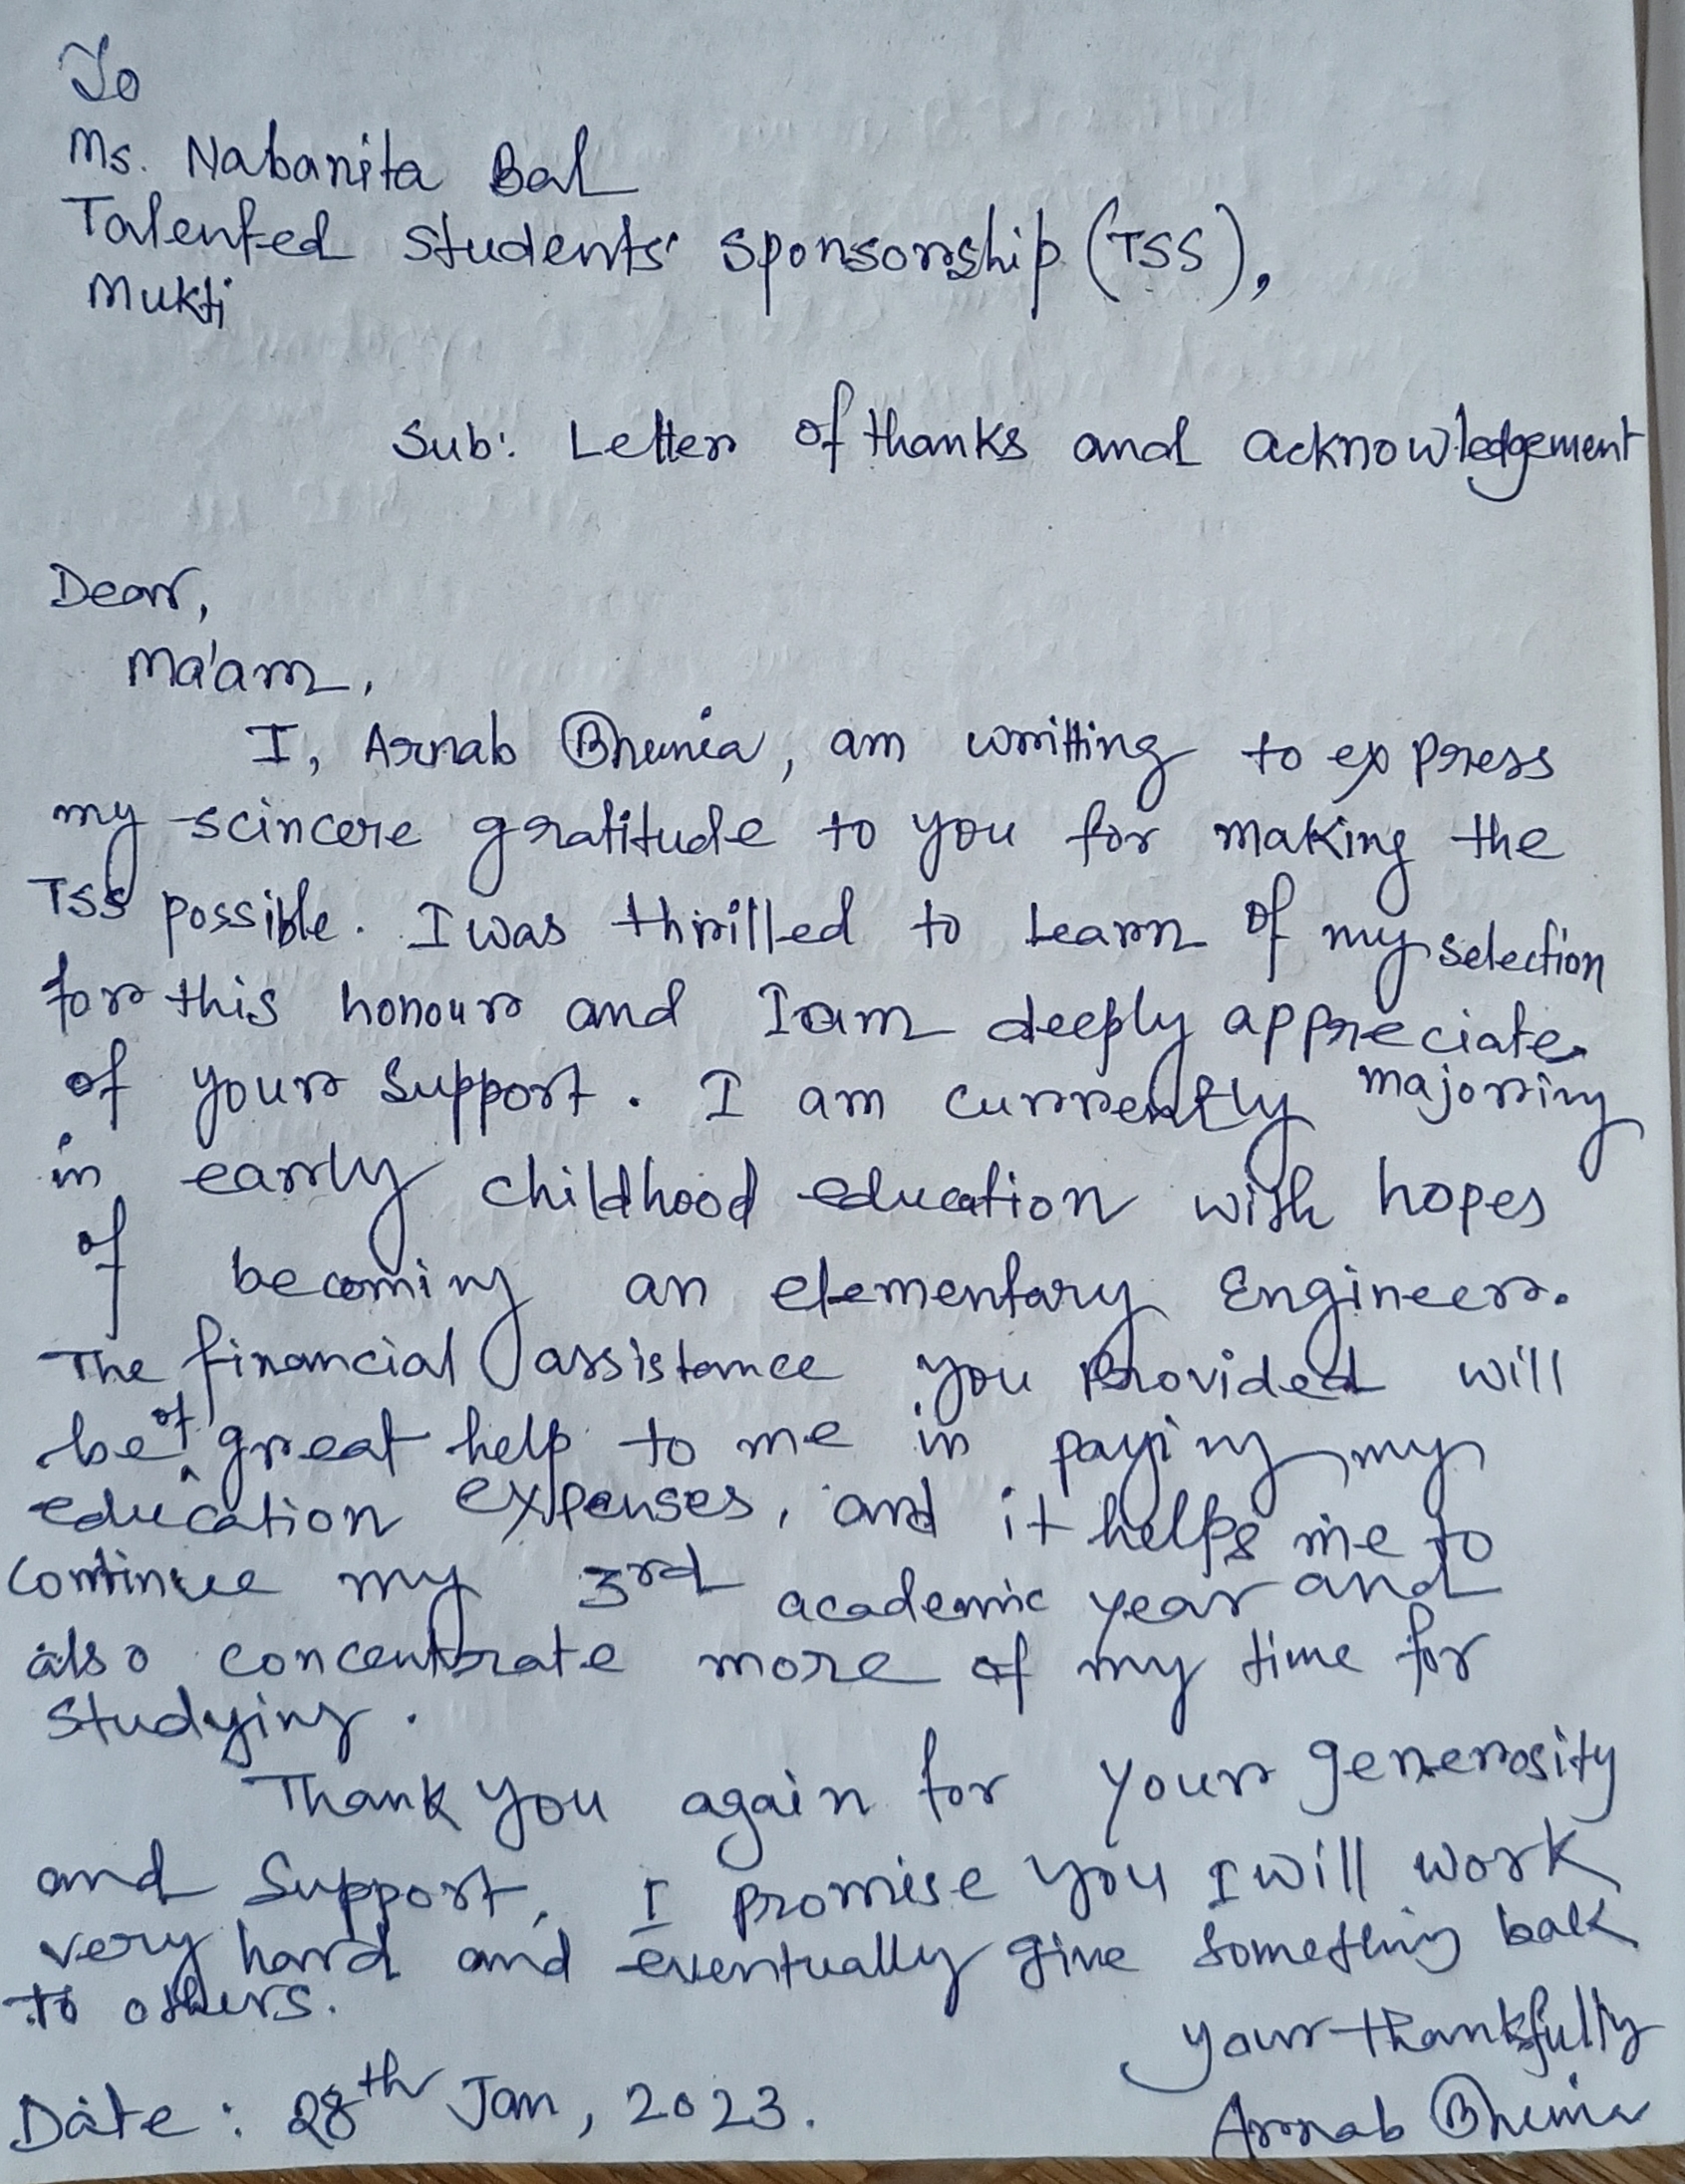 To
Ms. Nabanita Bal
Talented Students' Sponsorship (TSS),
Mukti
Sub: Letter of thanks and acknowledgement
Dear,
Ma'am,
I, Arnab Bhunia, am writting to express
my scincere gratitude to you for making the
TSS possible. I was thrilled to learn of my selection
for this honour and I am deeply appreciate
of your support. I am currently majoring
in early childhood education with hopes
of becoming an elementary Engineer.
The financial assistance you provided will
be of great help to me in paying my
education expenses, and it helps me to
continue my 3rd academic year and
also concentrate more of my time for
studying.
Thank you again for your generosity
and support, I promise you I will work
very hard and eventually give something back
to others.
your thankfully
Date: 28th Jan, 2023.
Arnab Bhunia